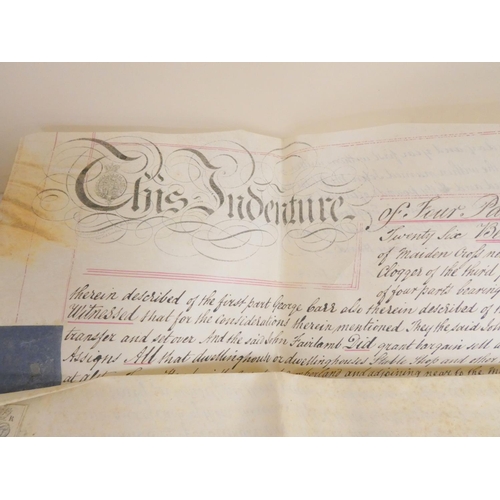 This Indenture
of Four Pa
Twenty Six
of Maiden Cross ne
Clogger of the third
of four parts
therein described of the first part George Carr also therein described of
Witnessed that for the Considerations therein mentioned They he said
transfer and set over And the said John Fairlamb Did grant bargain sell
Assigns All that dwellinghouse or dwellinghouses Stable Shop and other
and adjoining near to the